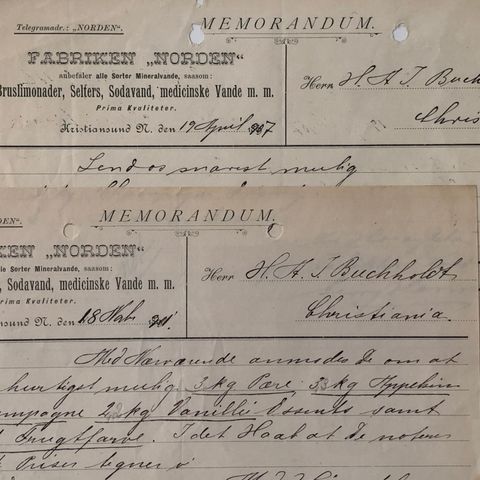 Telegramadr.: „NORDEN“.
MEMORANDUM.
FABRIKEN „NORDEN“
anbefaler alle Sorter Mineralvande, saasom:
Bruslimonader, Selfers, Sodavand, medicinske Vande m. m.
Prima Kvaliteter.
Kristiansund N. den 19 April 1907
Herr H. A. T. Buch
Chris
Send os snarest mulig
DEN“.
MEMORANDUM.
KEN „NORDEN“
lle Sorter Mineralvande, saasom:
, Sodavand, medicinske Vande m. m.
rima Kvaliteter.
nsund N. den 18
Herr H. A. T. Buchholdt
Christiania.
Med Nærværende anmodes De om at
hurtigst mulig 3 kg Pære 3 kg Appelsin
mpagne 2 kg Vanillie Essents samt
Frugtfarve. I det Haab at De noterer
Priser tegner